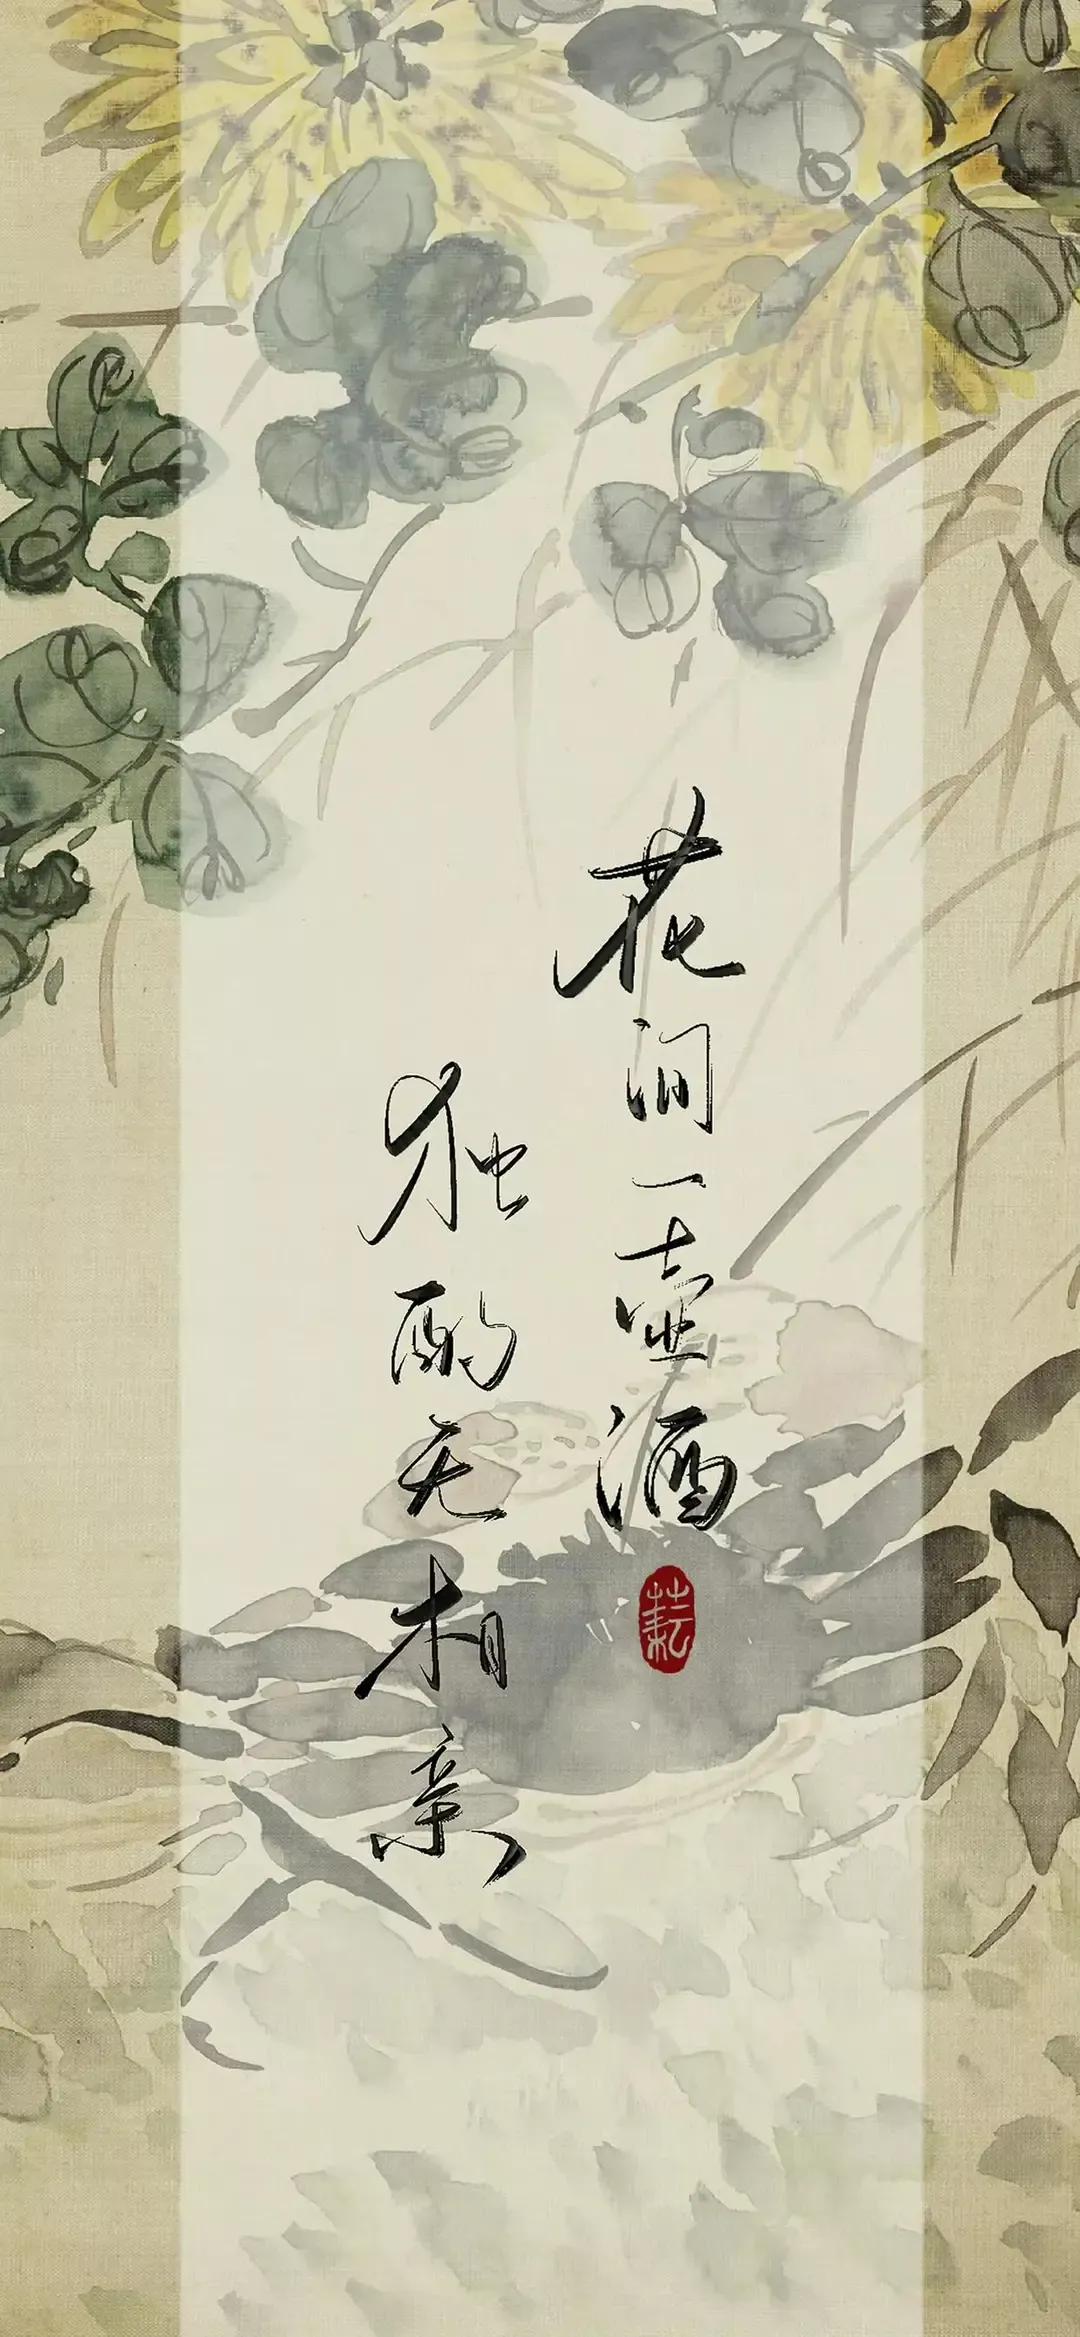 花间一壶酒
独酌无相亲
耘